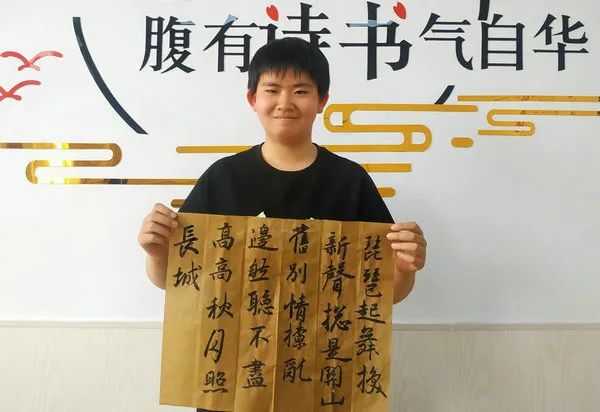 腹有诗书气自华
琵琶起舞換
新聲總是關山
舊別情撩亂
邊愁聽不盡
高高秋月照
長城